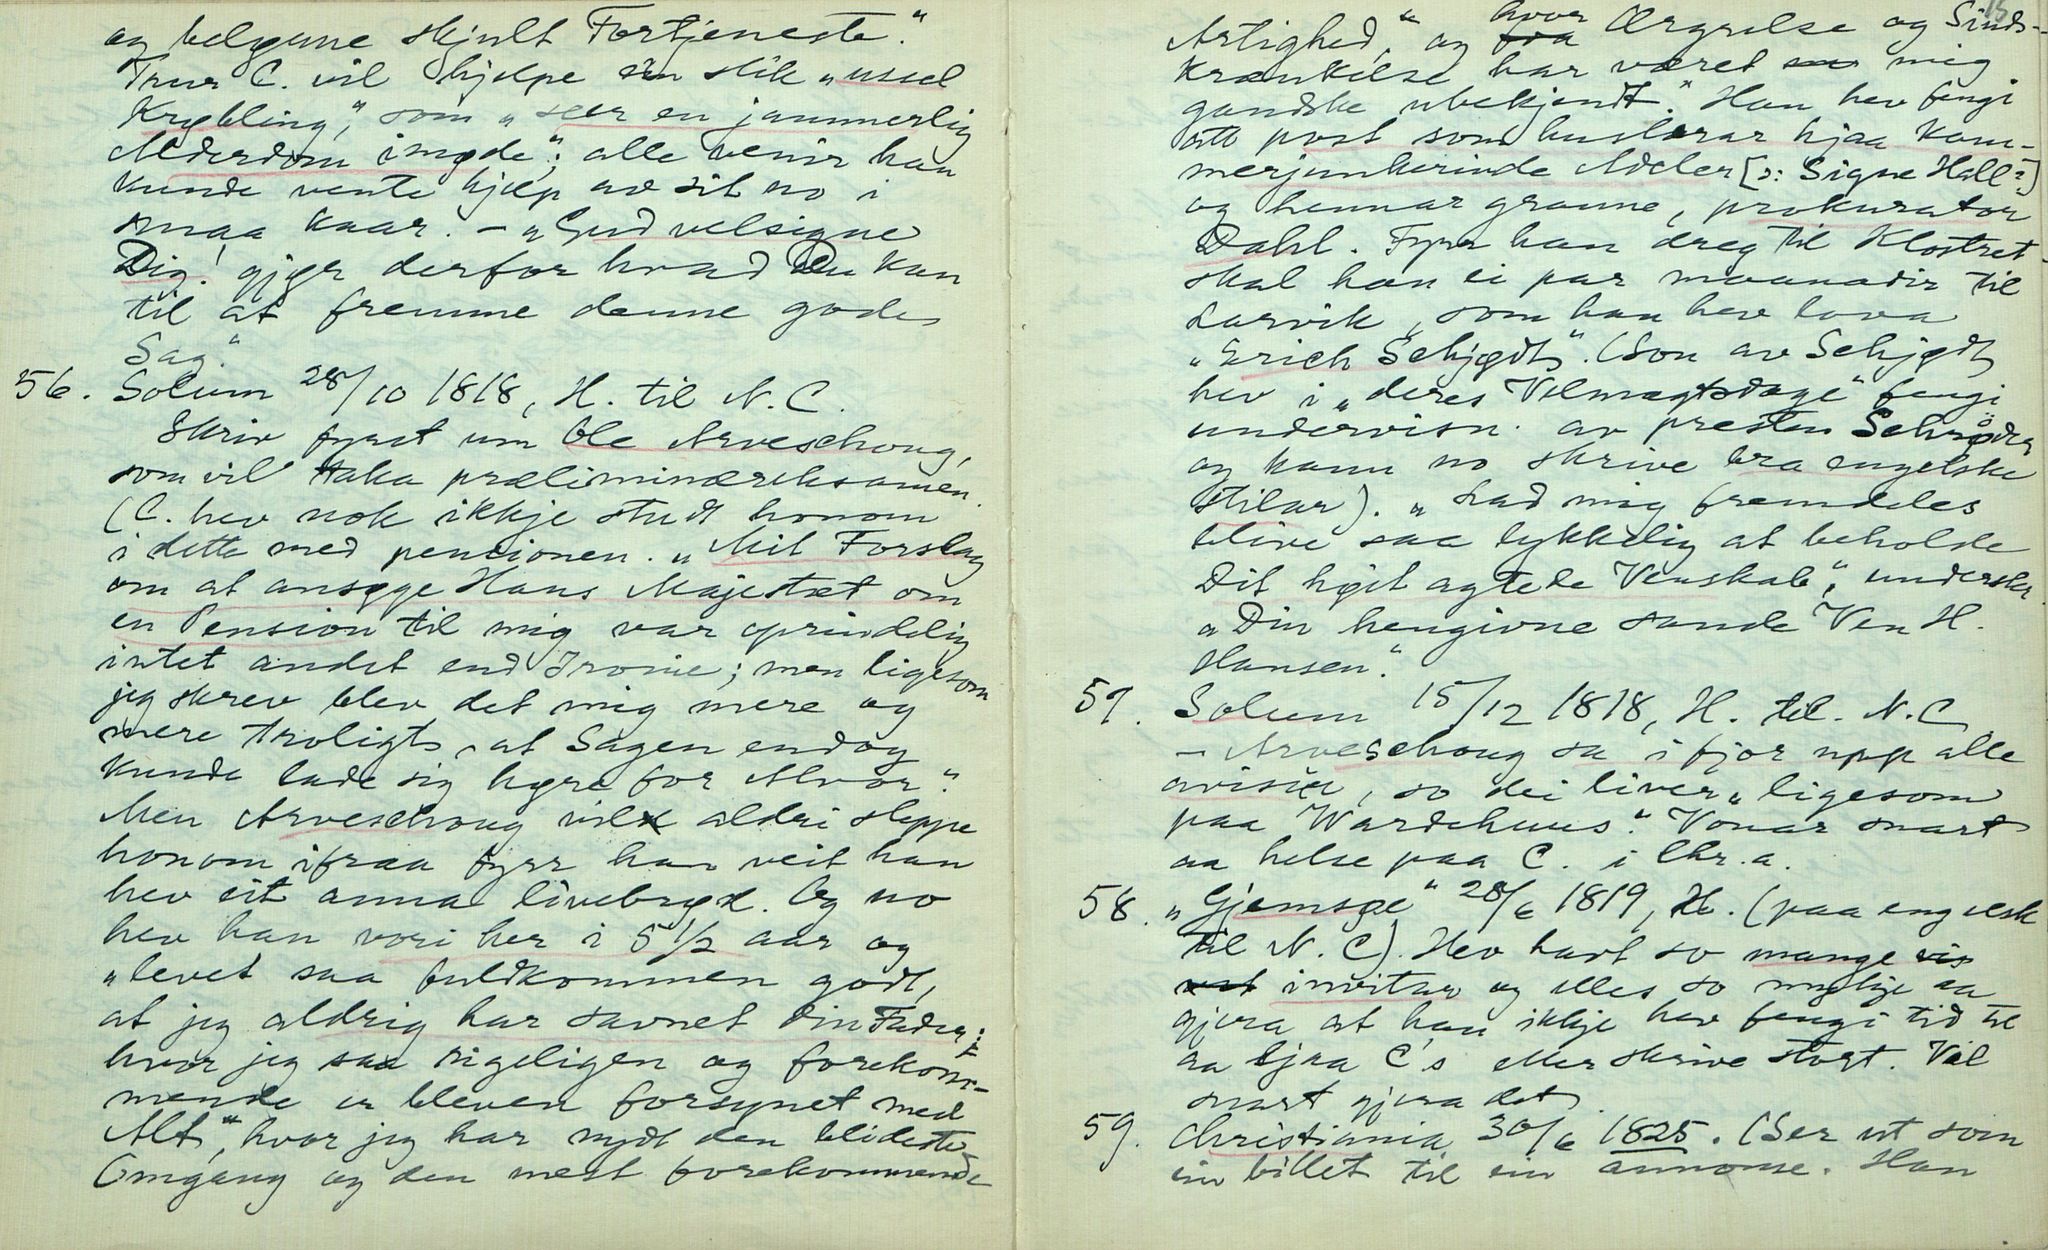 og belønne skjult Fortjeneste."
Trur C. vil hjelpe ein slik „ussel
Krybling", som „seer en jammerlig
Alderdom imøde"; alle venir han
kunde vente hjelp av sit no i
smaa kaar. – „Gud velsigne
Dig! gjør derfor hvad Du kan
til at fremme denne gode
Sag."
56. Solum 28/10 1818, H. til N. C.
Skriv fyrst um Ole Arveschoug,
som vil taka præliminæreksamen.
(C. hev nok ikkje studt honom
i dette med pensionen. „Mit Forslag
om at ansøge Hans Majestæt om
en Pension til mig var oprindelig
intet andet end Ironie; men ligesom
jeg skrev blev det mig mere og
mere troligt, at Sagen endog
kunde lade sig høre for Alvor."
Men Arveschoug vil aldri sleppe
honom ifraa fyrr han veit han
hev eit anna livebrød. Og no
hev han vori her i 5 1/2 aar og
„levet saa fuldkommen godt,
at jeg aldrig har savnet din Fader;
hvor jeg saa rigeligen og forekom-
mende er bleven forsynet med
Alt", hvor jeg har nydt den blideste
Omgang og den mest forekommende
15
Artighed," og hvor Ærgrelse og Sinds-
krænkelse har været mig
gandske ubekjendt." Han hev fengi
ått post som huslærar hjaa Kam-
merjunkerinde Adeler [ɔ: Signe Hall?]
og hennar granne, prokurator
Dahl. Fyrr han dreg til Klostret
skal han ei par maanadir til
Larvik, som han hev lova
„Erich Schjødt". (Son av Schjødt
hev i „deres Velmagtsdage" fengi
undervisn. av presten Schrøder
og kann no skrive bra engelske
stilar). „Lad mig fremdeles
blive saa lykkelig at beholde
Dit høit agtede Venskab", underskr.
„Din hengivne sande Ven H.
Hansen."
57. Solum 15/12 1818, H. til N. C.
– Arveschoug sa i fjor upp alle
avisin, so dei liver „ligesom
paa Wardehuus". Vonar snart
aa helse paa C. i Chr.a.
58. „Gjemsøe" 28/6 1819, H. (paa engelsk
til N. C). Hev havt so mange
invitar og elles so mykje aa
gjera at han ikkje hev fengi tid til
aa sjaa C's eller skrive stort. Vil
snart gjera det.
59. Christiania 30/6 1825. (Ser ut som
ein billet til ein annonse. Han